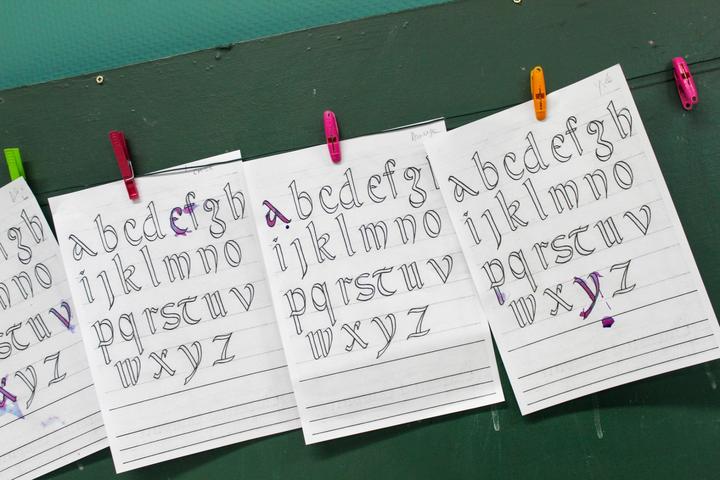 gh
no
uv
xyz
abcdefgh
ijklmno
pqrstuv
wxyz
abcdefg
ijklmno
pqrstuv
wxyz
abcdefgh
ijklmno
pqrstuv
wxyz